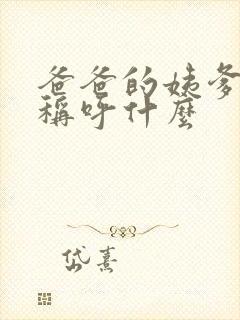 爸爸的姨爹
稱呼什麼
岱熹